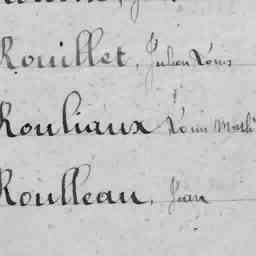 Rouillet, Julien Louis
Rouliaux Louis Math
Roulleau, Jean